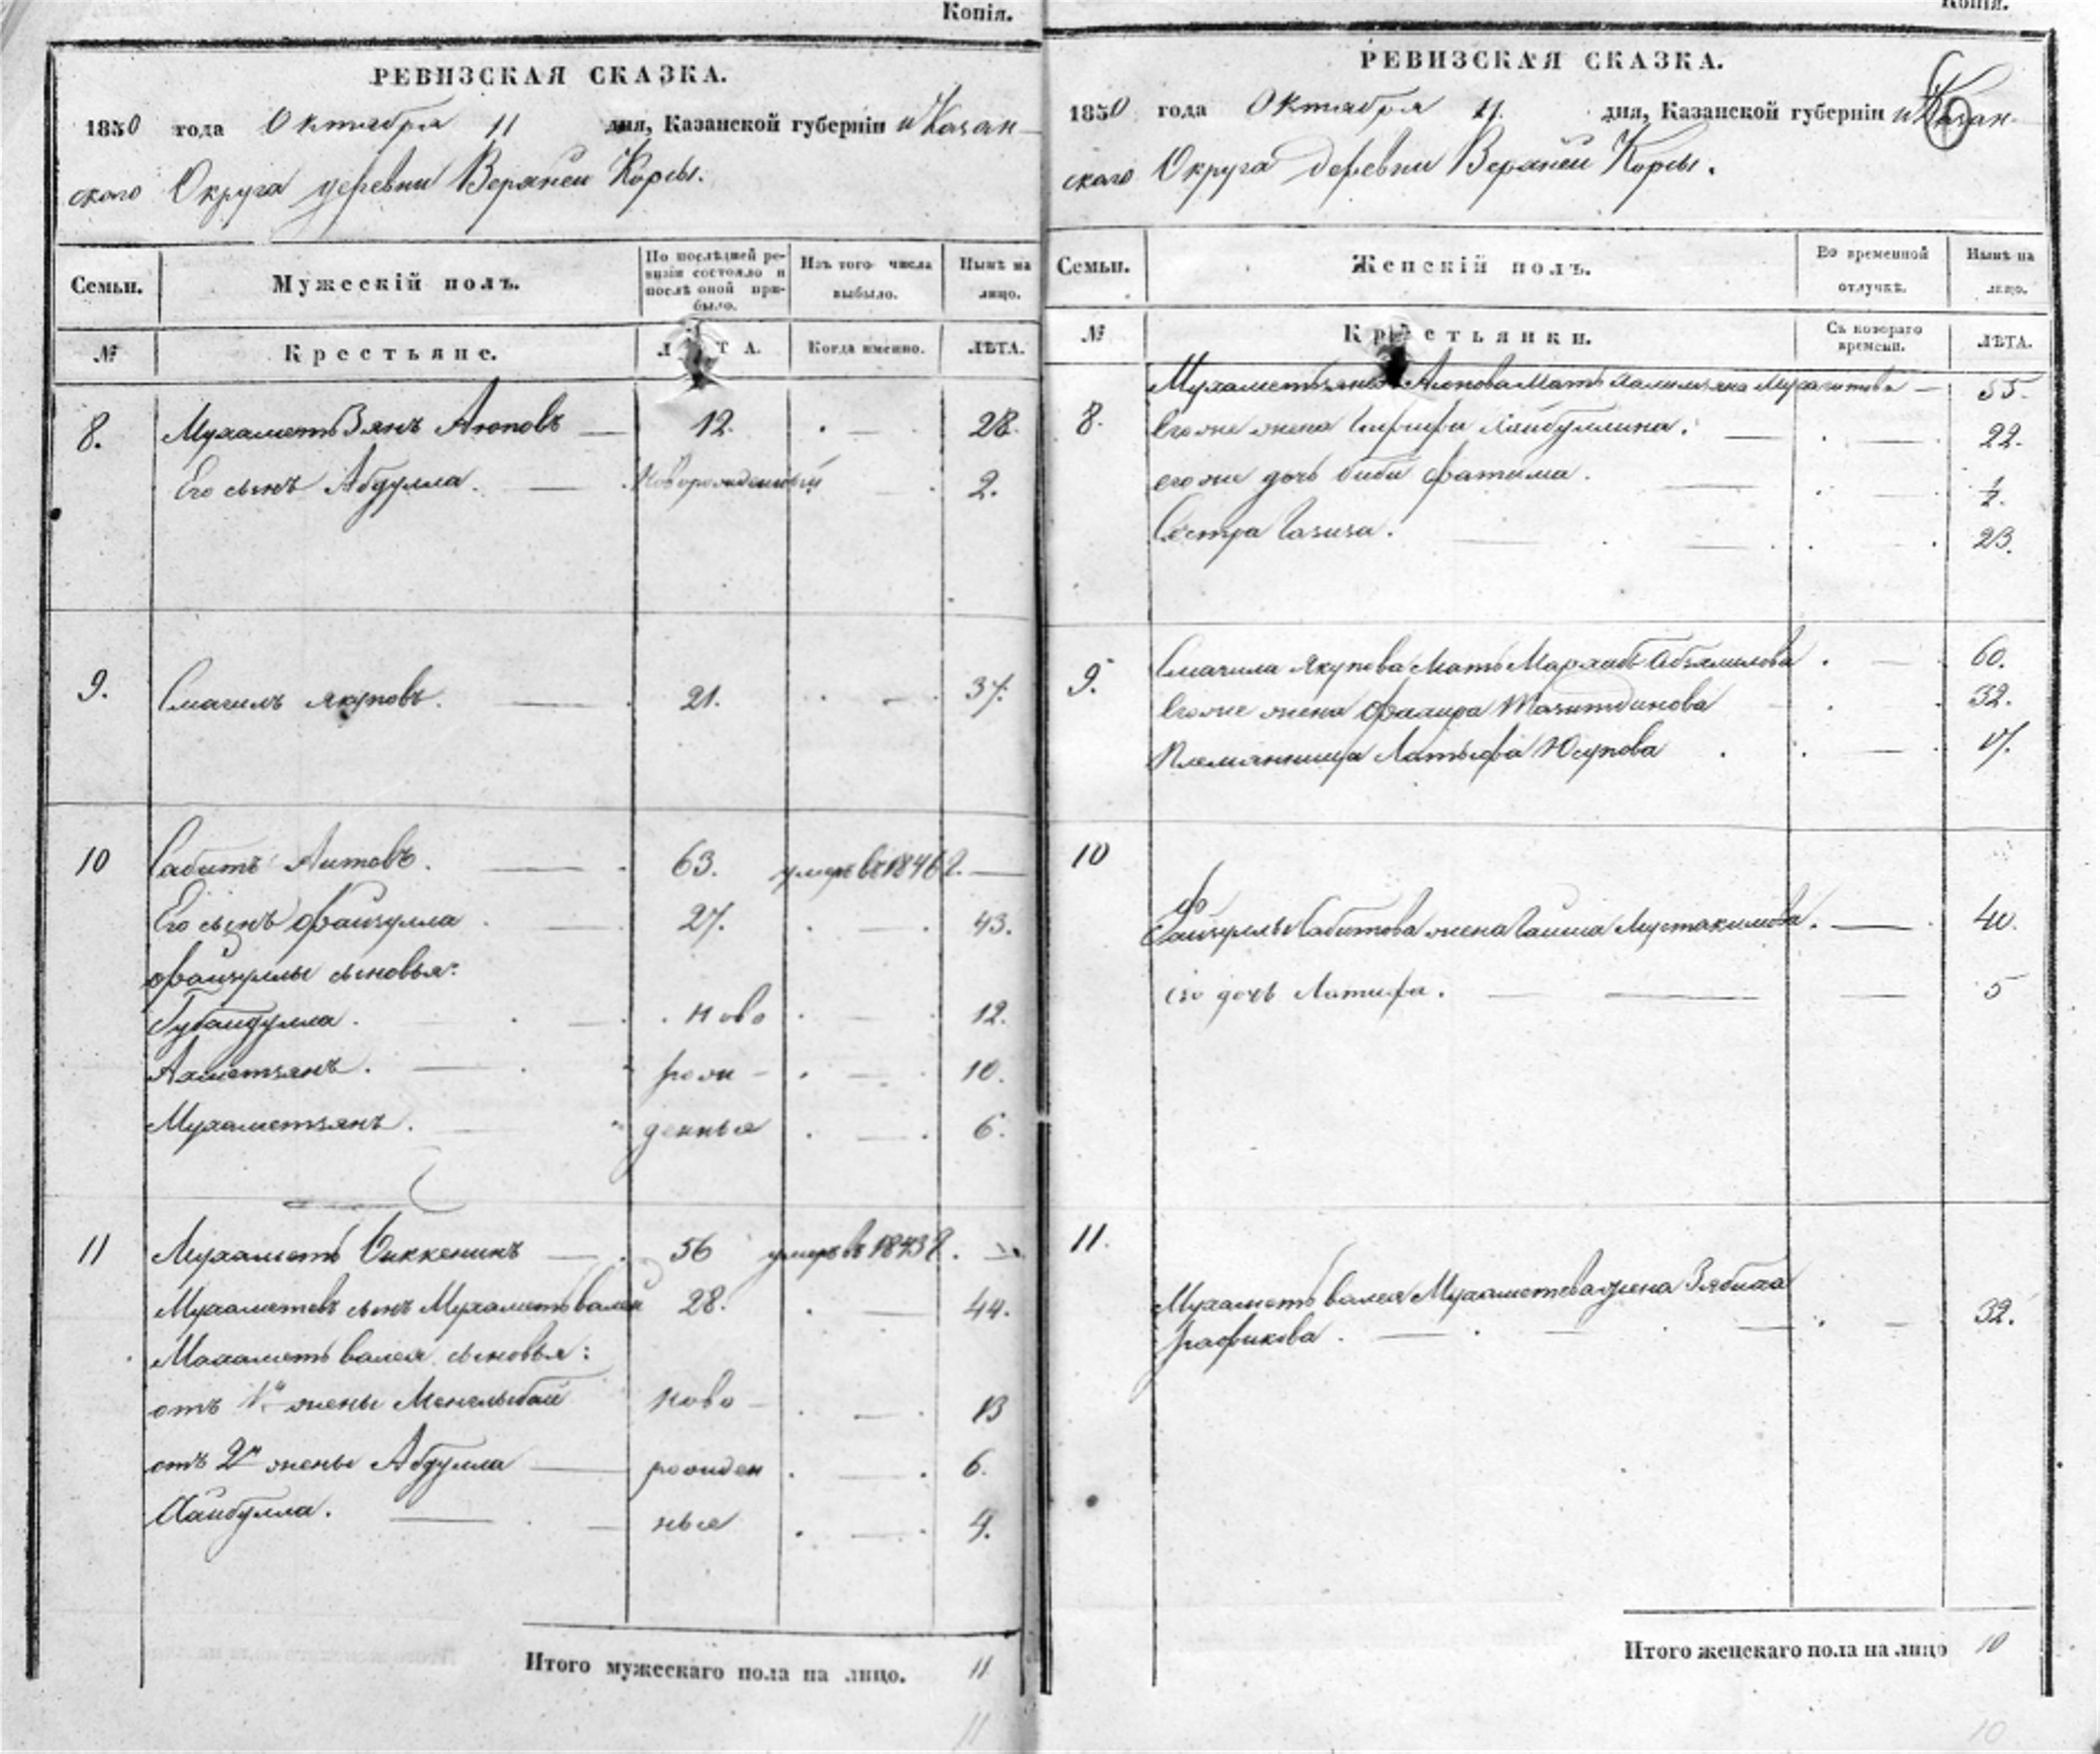 Копія.
РЕВИЗСКАЯ СКАЗКА.
1850 года Октября 11 дня, Казанской губерніи и Казан-
скаго Округа деревни Верхней Корсы.
Семьи. Мужескій полъ. По послѣдней ревизіи состояло и послѣ оной прибыло. Изъ того числа выбыло. Нынѣ на лицо.
№ Крестьяне. ЛѢТА. Когда именно. ЛѢТА.
8. Мухаметь Зянъ Аюповъ 12. 28.
Его сынъ Абдулла. Новорожденный 2.
9. Смагилъ Якуповъ. 21. 37.
10 Сабитъ Аитовъ. 63. умеръ въ 1846 г.
Его сынъ Файзулла 27. 43.
Файзуллы сыновья:
Губайдулла. ново 12.
Ахметзянъ. рож- 10.
Мухаметзянъ. денные 6.
11 Мухаметь Биккенинъ 56 умеръ въ 1843 г.
Мухаметевъ сынъ Мухаметь валей 28. 44.
Махаметь валея сыновья:
отъ 1й жены Менглыбай ново- 13
отъ 2й жены Абдулла рожден 6.
Хайбулла. ные 4.
Итого мужескаго пола на лицо. 11
11
Копія.
РЕВИЗСКАЯ СКАЗКА.
1850 года Октября 11. дня, Казанской губерніи и Казан-
скаго Округа деревни Верхней Корсы.
6
Семьи. Женскій полъ. Во временной отлучкѣ. Нынѣ на лицо.
№ Крестьянки. Съ котораго времени. ЛѢТА.
Мухаметьзяна Аюпова Мать 55.
8. Его же жена Хайбуллина. 22.
его же дочь биби Фатима. ½.
Сестра Газиза. 23.
9. Смагила Якупова Мать 60.
Его же жена 32.
Племянница Латыфа Юсупова 17.
10
Файзуллы Сабитова жена Гайша Мустакимова. 40.
Его дочь Латифа. 5
11.
Мухаметь валея Мухаметева жена Зябиха
Рафикова. 32.
Итого женскаго пола на лицо 10
10